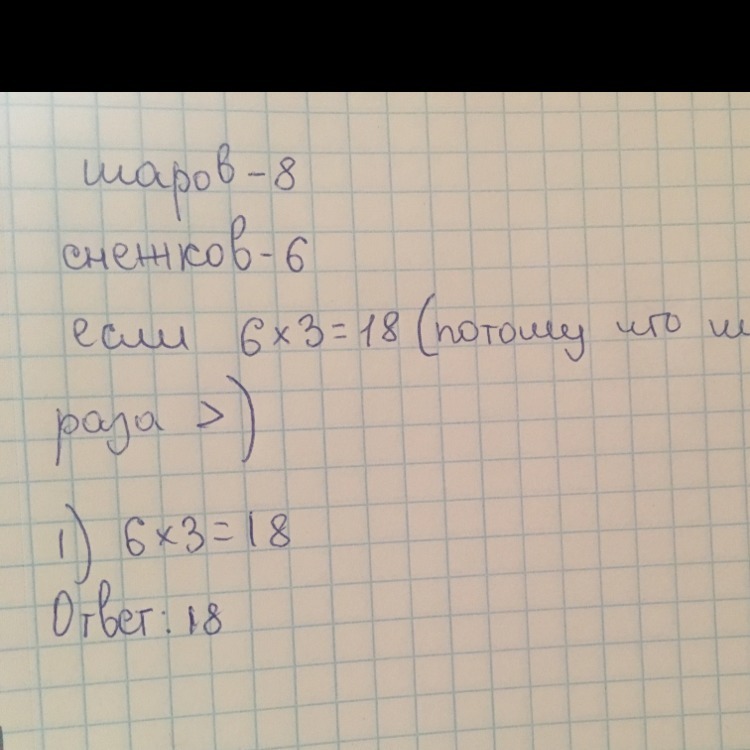 шаров - 8
снежков - 6
если 6 × 3 = 18 (потому что
раза >)
1) 6 × 3 = 18
Ответ: 18